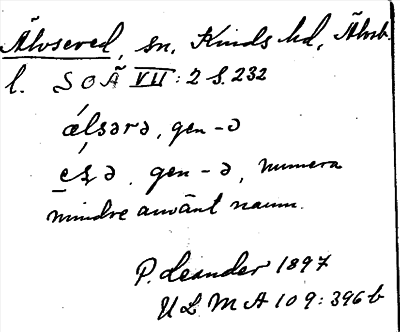 Älvsered, sn, Kinds hd, Älvsb.
l. SOÄ VII: 2 s. 232
ǽlsərə, gen -ə
e̱ʂ́ə, gen -ə, numera
mindre använt namn.
P. Leander 1897
ULMA 109: 396 b